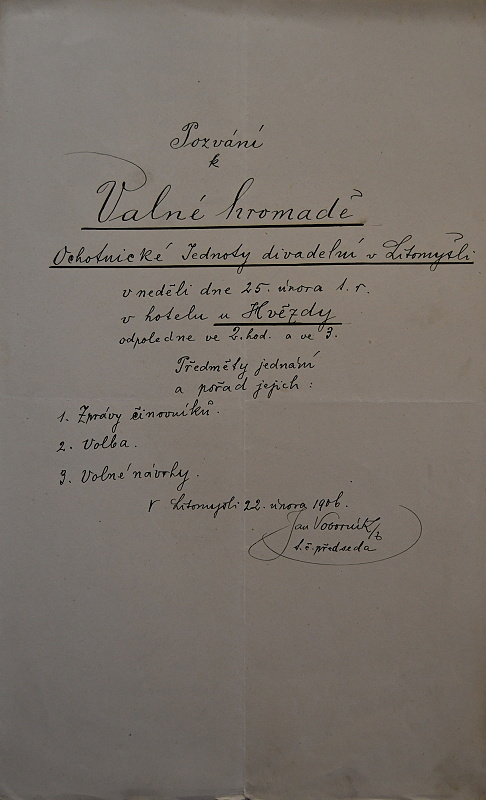 Pozvání
k
Valné hromadě
Ochotnické Jednoty divadelní v Litomyšli
v neděli dne 25. února l. r.
v hotelu u Hvězdy
odpoledne ve 2. hod. a ve 3.
Předměty jednání
a pořad jejich :
1. Zprávy činovníků.
2. Volba.
3. Volné návrhy.
V Litomyšli 22. února 1906.
Jan Voborník
t. č. předseda